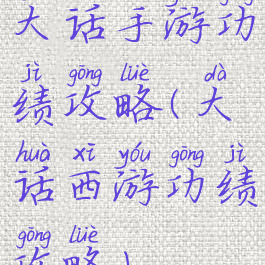 大话手游功
jì gōng lüè dà
绩攻略(大
huà xī yóu gōng jì
话西游功绩
gōng lüè
攻略)